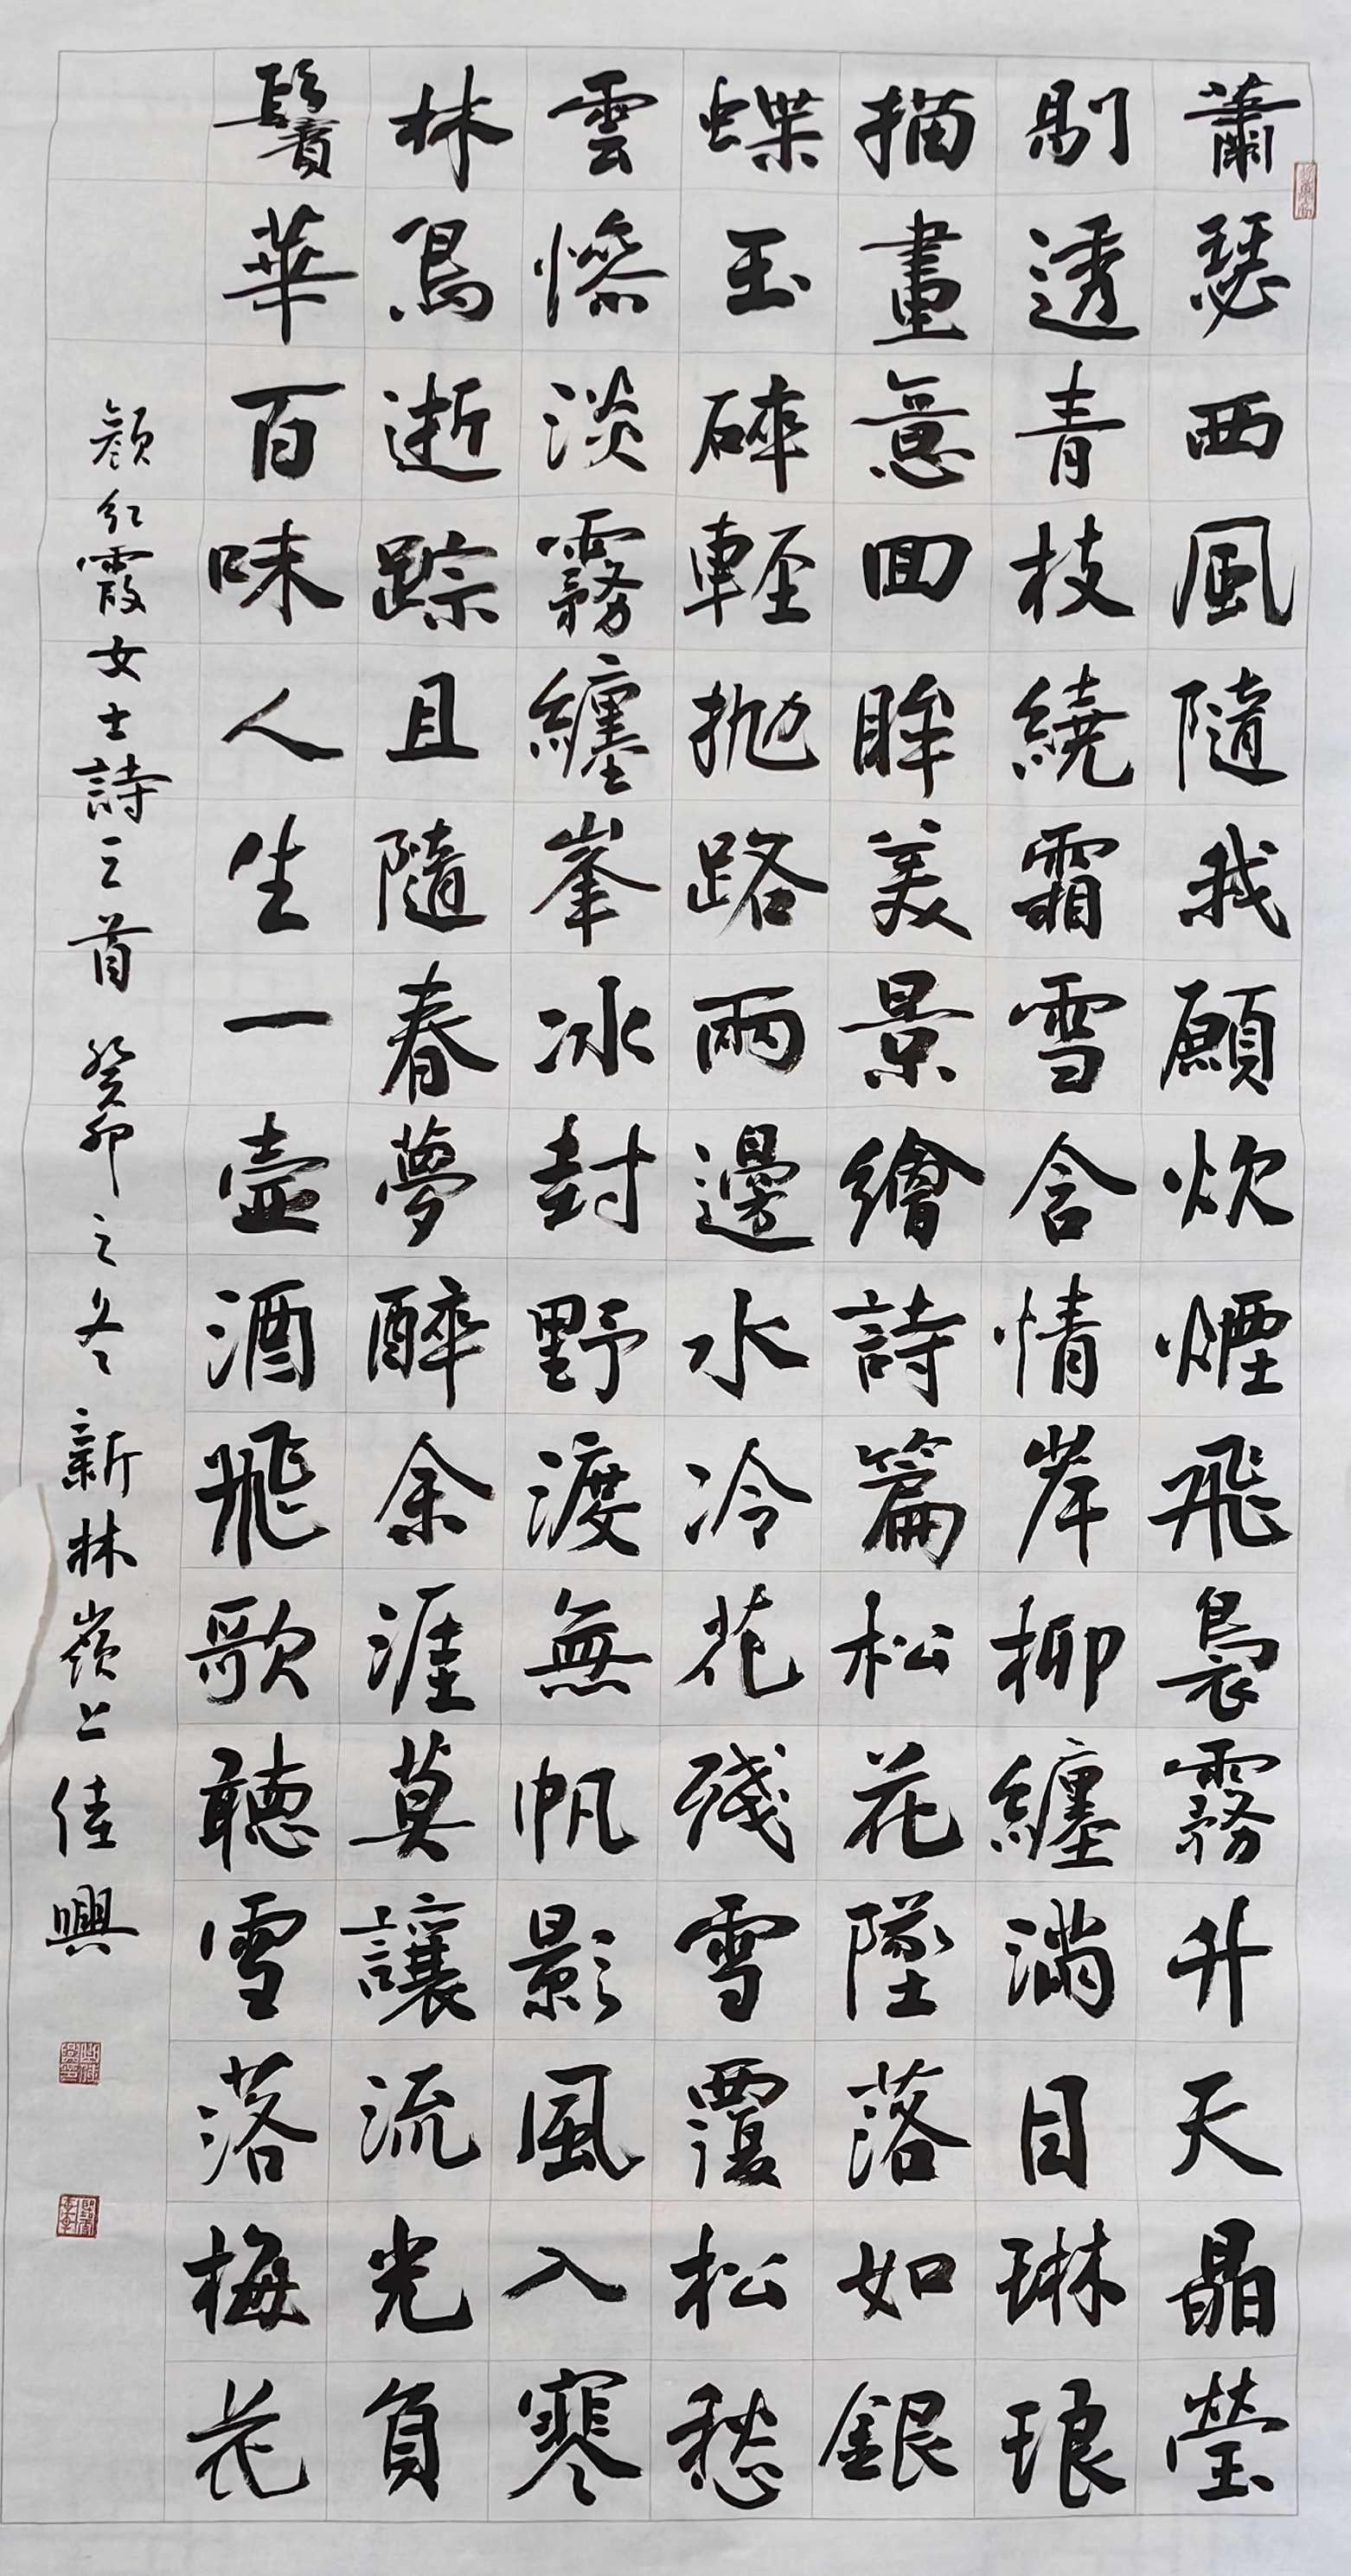 蕭瑟西風隨我願炊煙飛裊霧升天晶瑩
剔透青枝繞霜雪含情岸柳纏滿目琳琅
描畫意回眸美景繪詩篇松花墜落如銀
蝶玉碎輕拋路兩邊水冷花殘雪覆松愁
雲慘淡霧纏峯冰封野渡無帆影風入寒
林鳥逝踪且隨春夢醉余涯莫讓流光負
鬢華百味人生一壺酒飛歌聽雪落梅花
顏紅霞女士詩三首 癸卯之冬 新林嶺上佳興